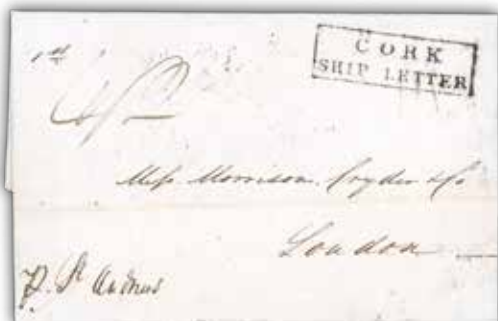 CORK
SHIP LETTER
1st
Messs. Morrison, Cryder & Co
London
P. St Andrews